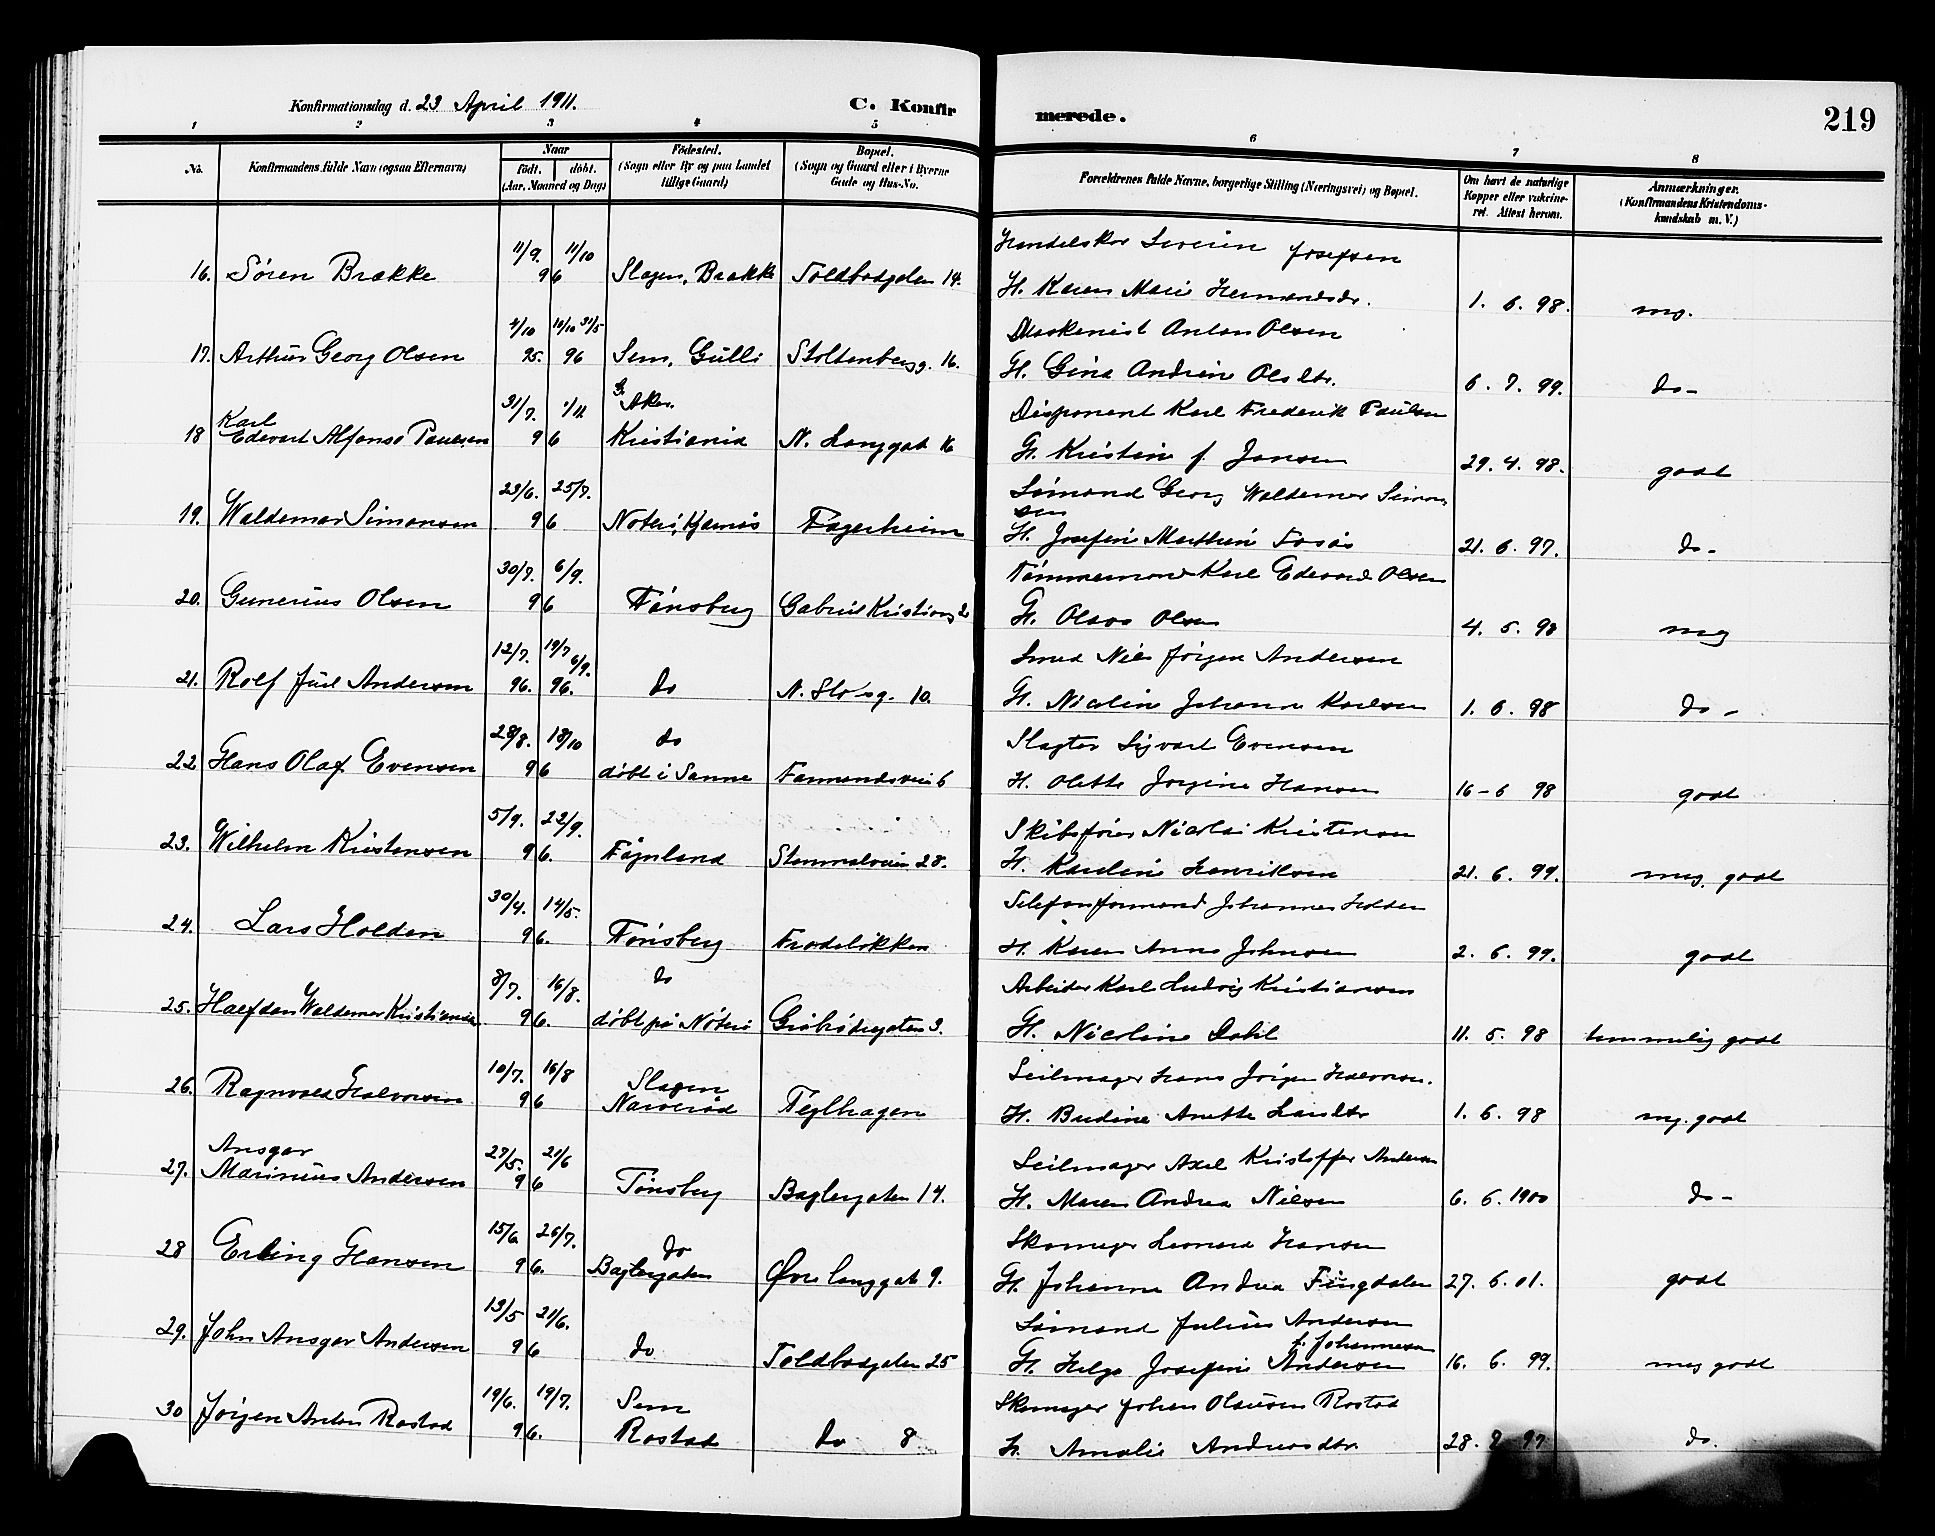 Konfirmationsdag d. 23 April 1911.
C. Konfir
merede.
219
1 2 3 4 5 6 7 8
No. Konfirmandens fulde Navn (ogsaa Efternavn) Naar født. døbt. (Aar, Maaned og Dag) Fødested. (Sogn eller By og paa Landet tillige Gaard) Bopæl. (Sogn og Gaard eller i Byerne Gade og Hus-No. Forældrenes fulde Navne, borgerlige Stilling (Næringsvei) og Bopæl. Om havt de naturlige Kopper eller vakcineret. Attest herom. Anmærkninger. (Konfirmandens Kristendomskundskab m. V.)
11/9. 11/10 Severin Josefsen
16. Søren Brække 96 Slagen, Brække Toldbodgaten 14. H. Karen Marie 1. 6. 98. mg.
4/10 10/10 31/5 Maskenist Anton Olsen
17. Arthur Georg Olsen 95. 96 Sem, Gulli Stoltenbergg. 16. H. Gina Andrine Olsdtr. 6. 7. 99. do-
31/7. 1/11 Aker. Disponent Karl Frederik Paulsen
18 Karl Edvart Alfonso Paulsen 96 Kristiania N. Langgat 16 H. Kristine f. Jansen 29. 4. 98. godt
23/6. 25/7. Sømand Georg Waldemar Simonsen
19. Waldemar Simonsen 96 Nøterø, Kjernås Fagerheim H. Josefine Mathea 21. 6. 97. do-
30/7. 6/9. Tømmermand Karl Edvard Olsen
20. Gunerius Olsen 96 Tønsberg Gabriel Kristians 2 H. Olava Olsen 4. 5. 98 mg
12/7. 19/7 6/9. Smed Nils Jørgen Andersen
21. Rolf Juel Andersen 96. 96. do N. Slotsg. 10. H. Nicoline Johanne Karlsen 1. 6. 98 do-
28/8. 18/10 do Slagter Sigvart Evensen
22 Hans Olaf Evensen 96 døbt i Sanne Farmandsvei 6 H. Olette Jorgine Hansen 16-6 98 godt
5/9. 22/9. Skibsfører Nicolai Kristensen
23. Wilhelm Kristensen 96. Føynland Stenmalveien 28. H. Karoline Henriksen 21. 6. 99. meg. godt
30/4. 14/5. Telefonformand Johannes Holden
24. Lars Holden 96. Tønsberg Frodeløkken H. Karen Anna Johnsen 2. 6. 99. godt
8/7. 16/8. do Arbeider Karl Ludvig Kristiansen
25. Halfdan Waldemar Kristiansen 96. døbt på Nøterø Gråbrødregaten 3. H. Nicoline Dahl 11. 5. 98 temmelig godt
10/7. 16/8 Slagen Seilmager Hans Jørgen Halvorsen.
26. Ragnvald Halvorsen 96 Narverød Teglhagen H. Budine Anette Larsdtr 1. 6. 98 mg. godt
Ansgar 27/5. 21/6 Seilmager Axel Kristoffer Andersen
27. Marinius Andersen 96 Tønsberg Baglergaten 14. H. Maren Andrea Nilsen 6. 6. 1900 do-
15/6 26/7. do Skomager Leonard Hansen
28 Erling Hansen 96. Baglergaten Øvre langgat 9. H. Johanne Andrea 27. 6. 01. godt
13/5 21/6. Sømand Julius Andersen
29. John Ansgar Andersen 96 do Toldbodgaten 25 H. Helga Josefine Andersen f. Johannesen 16. 6. 99. meg godt
19/6. 19/7. Sem Skomager Johan Olausen Rostad
30 Jørgen Anton Rostad 96. Rostad do 8 H. Amalie Andreasdtr. 28. 9. 97 do.